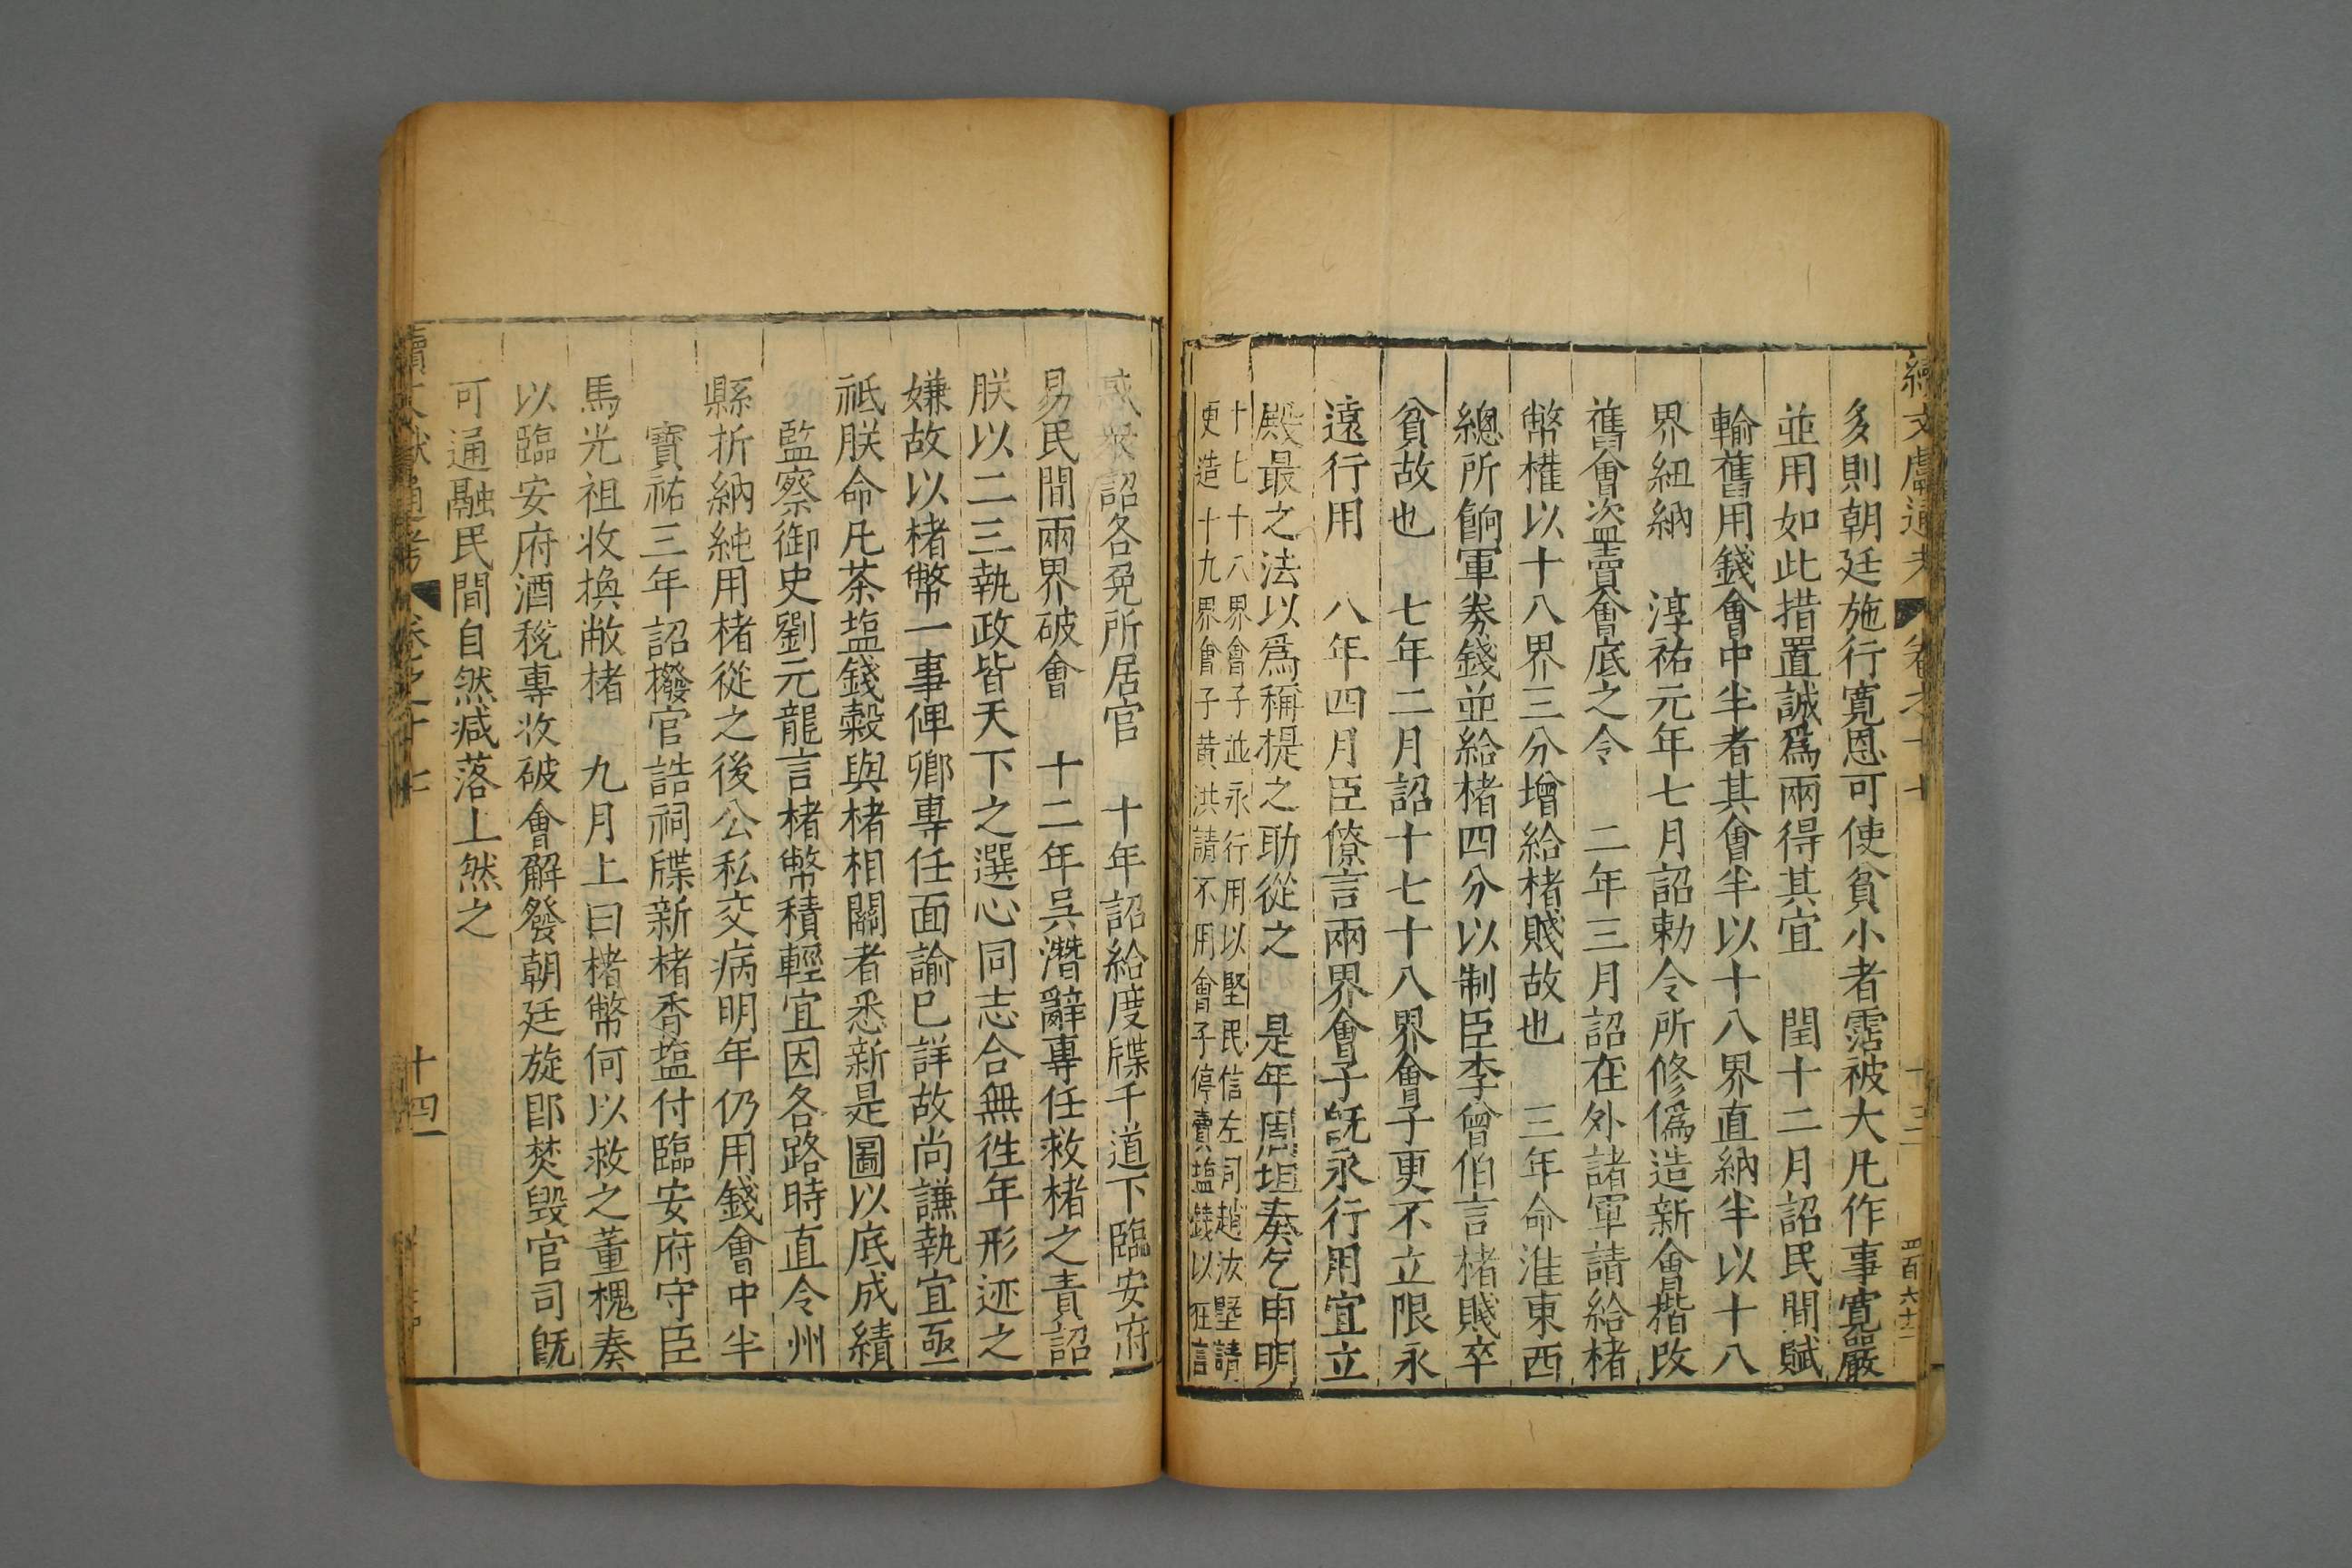 續文獻通考 卷之十七 十三 四百六十二
多則朝廷施行寬恩可使貧小者霑被大凡作事寬嚴
並用如此措置誠爲兩得其宜 閏十二月詔民間賦
輸舊用錢會中半者其會半以十八界直納半以十八
界紐納 淳祐元年七月詔勅令所修僞造新會楷改
舊會盜賣會底之令 二年三月詔在外諸軍請給楮
幣權以十八界三分增給楮賤故也 三年命淮東西
總所餉軍券錢並給楮四分以制臣李曾伯言楮賤卒
貧故也 七年二月詔十七十八界會子更不立限永
遠行用 八年四月臣僚言兩界會子旣永行用宜立
殿最之法以爲稱提之助從之 是年周坦奏乞申明
十七十八界會子並永行用以堅民信左司趙汝塈請
更造十九界會子黄洪請不用會子停賣塩錢以狂言
惑衆詔各免所居官 十年詔給度牒千道下臨安府
易民間兩界破會 十二年吳潛辭專任救楮之責詔
朕以二三執政皆天下之選心同志合無徃年形迹之
嫌故以楮幣一事俾卿專任面諭已詳故尚謙執宜亟
祗朕命凡茶塩錢穀與楮相關者悉新是圖以底成績
監察御史劉元龍言楮幣積輕宜因各路時直令州
縣折納純用楮從之後公私交病明年仍用錢會中半
寶祐三年詔撥官誥祠牒新楮香塩付臨安府守臣
馬光祖收換敝楮 九月上曰楮幣何以救之董槐奏
以臨安府酒稅專收破會解發朝廷旋即焚毀官司旣
可通融民間自然減落上然之
續文獻通考 卷之十七 十四